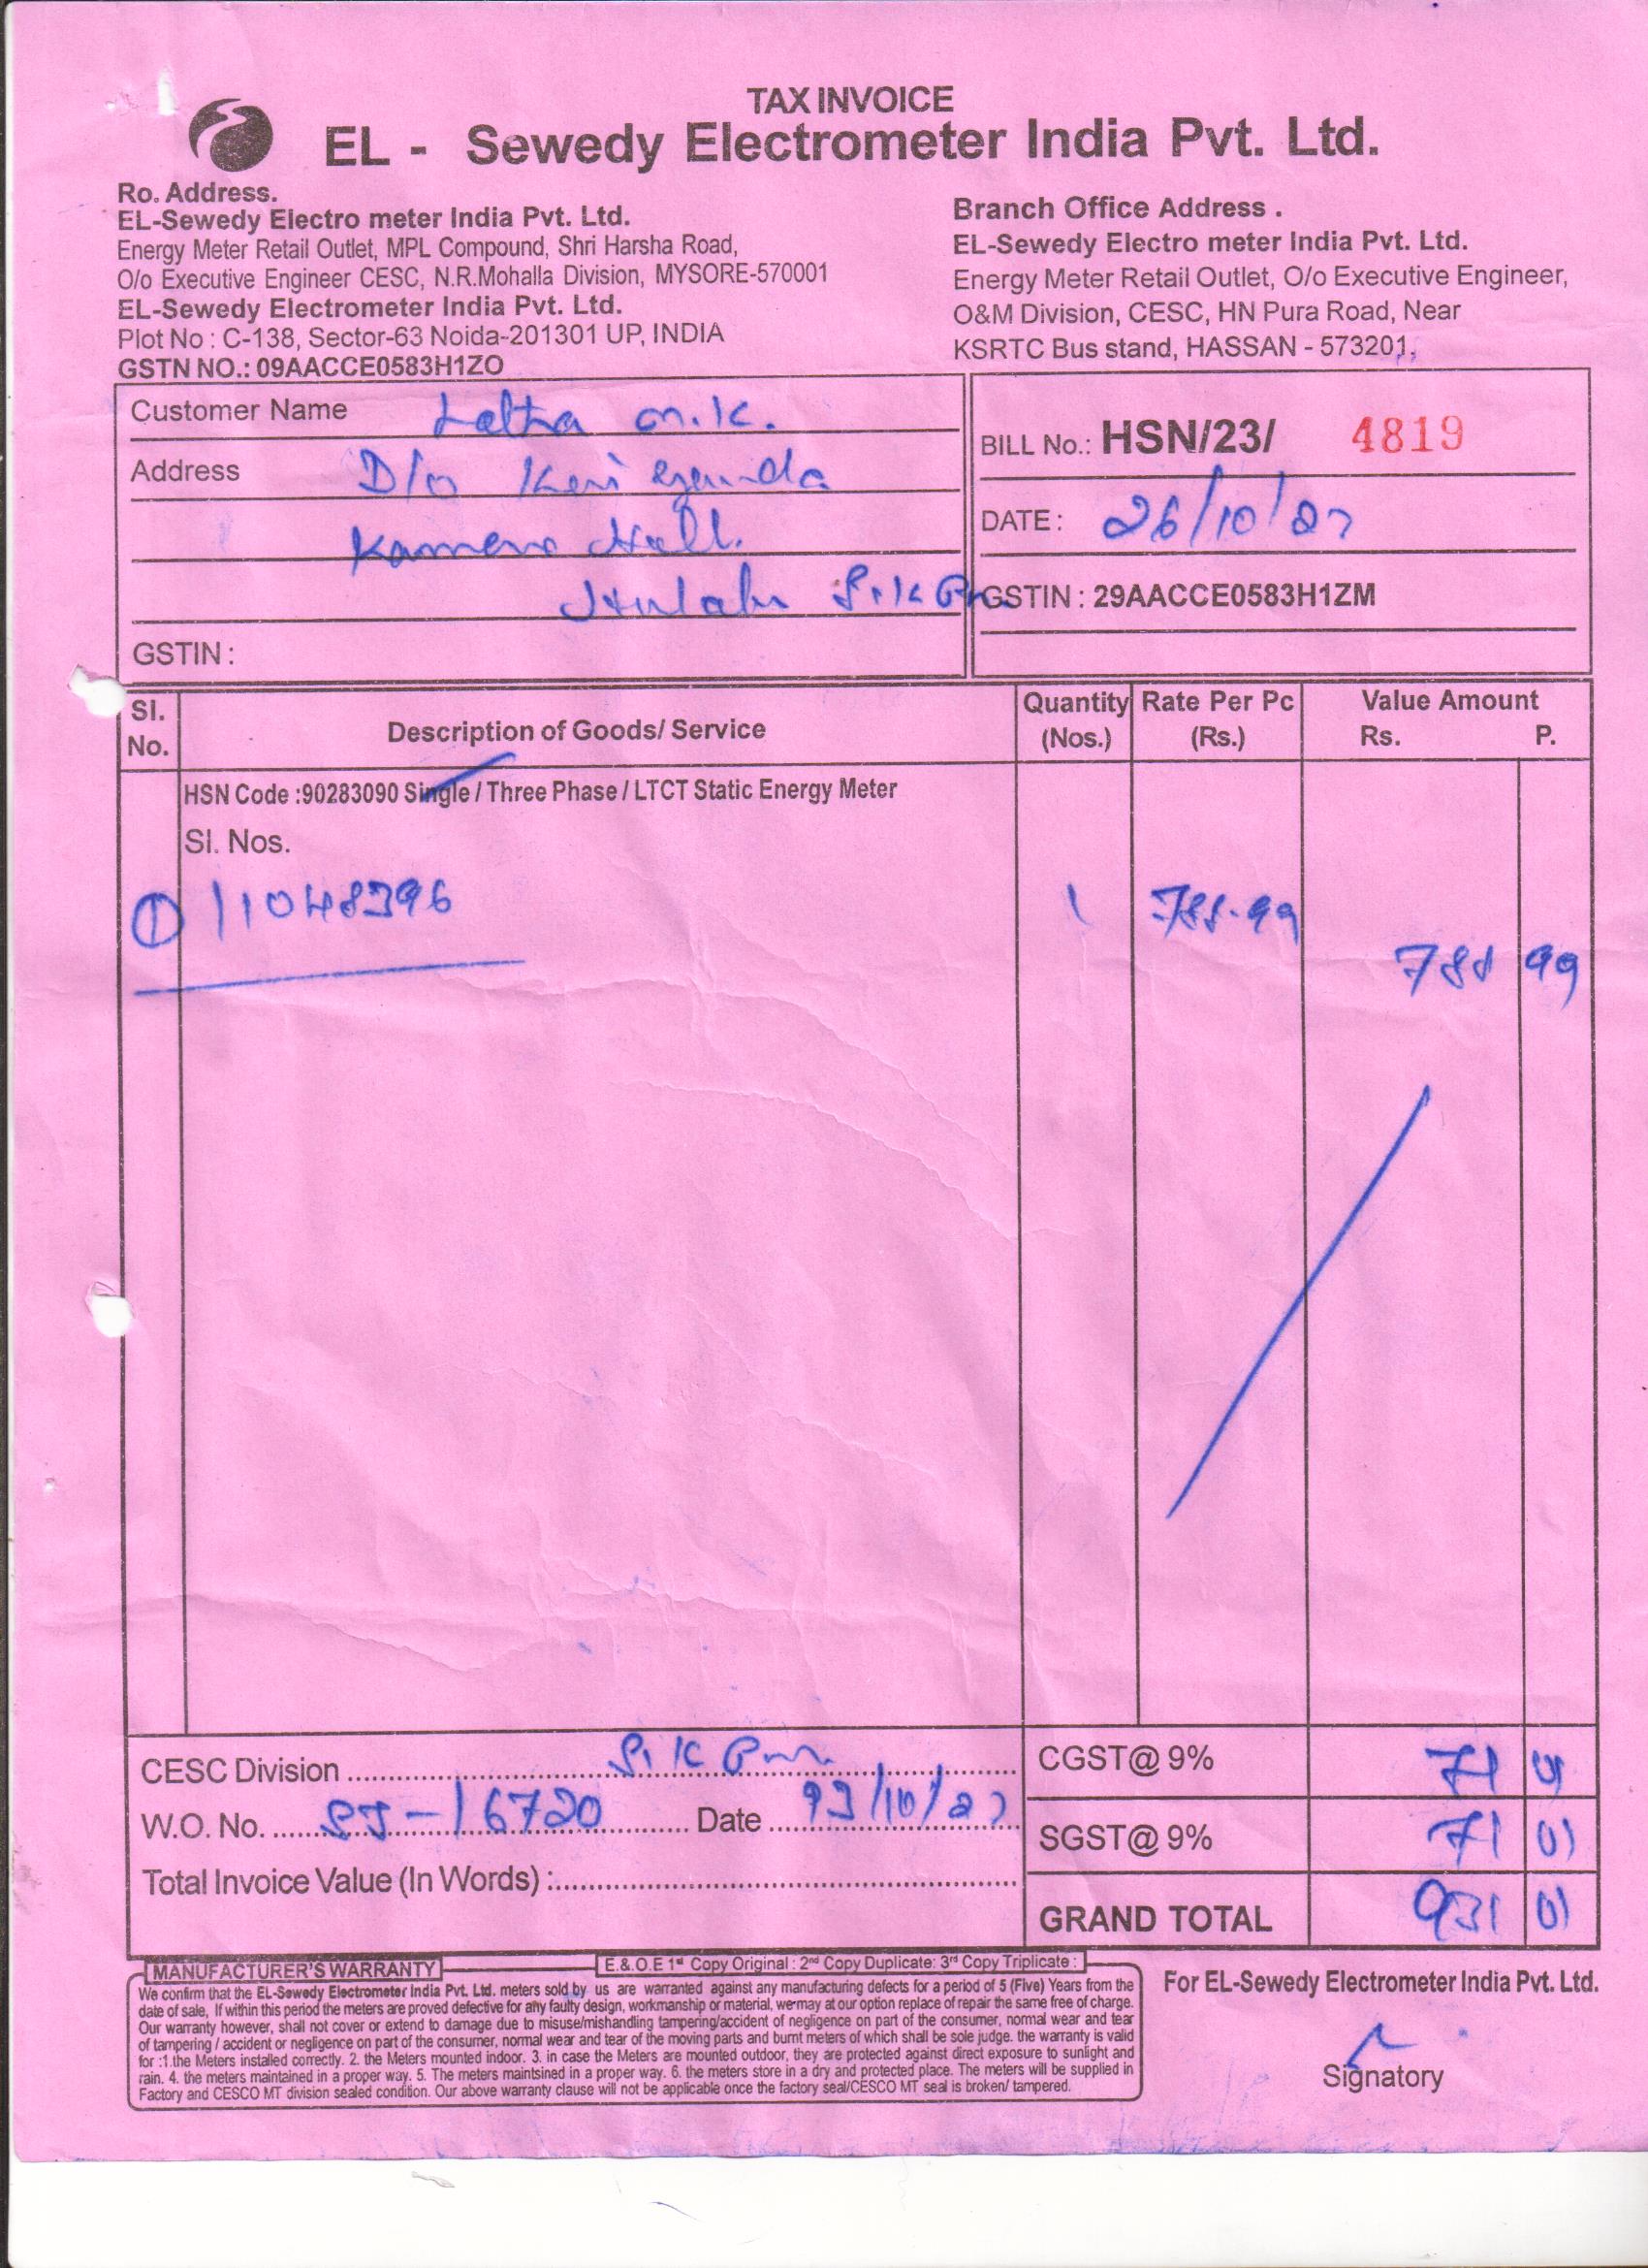 TAX INVOICE
EL - Sewedy Electrometer India Pvt. Ltd.
Ro. Address.
EL-Sewedy Electro meter India Pvt. Ltd.
Energy Meter Retail Outlet, MPL Compound, Shri Harsha Road,
O/o Executive Engineer CESC, N.R.Mohalla Division, MYSORE-570001
EL-Sewedy Electrometer India Pvt. Ltd.
Plot No : C-138, Sector-63 Noida-201301 UP, INDIA
GSTN NO.: 09AACCE0583H1ZO
Branch Office Address .
EL-Sewedy Electro meter India Pvt. Ltd.
Energy Meter Retail Outlet, O/o Executive Engineer,
O&M Division, CESC, HN Pura Road, Near
KSRTC Bus stand, HASSAN - 573201.
Customer Name Latha M.K.
Address D/o
GSTIN :
BILL No.: HSN/23/ 4819
DATE : 26/10/23
GSTIN : 29AACCE0583H1ZM
Sl. No. Description of Goods/ Service Quantity (Nos.) Rate Per Pc (Rs.) Value Amount Rs. P.
HSN Code :90283090 Single / Three Phase / LTCT Static Energy Meter
Sl. Nos.
1 11048396 1 788.99 788 99
CESC Division S.K Pura
W.O. No. Date
Total Invoice Value (In Words) :
CGST@ 9% 71 01
SGST@ 9% 71 01
GRAND TOTAL 931 01
E.&.O.E 1st Copy Original : 2nd Copy Duplicate: 3rd Copy Triplicate :
MANUFACTURER'S WARRANTY
We confirm that the EL-Sewedy Electrometer India Pvt. Ltd. meters sold by us are warranted against any manufacturing defects for a period of 5 (Five) Years from the
date of sale, If within this period the meters are proved defective for any faulty design, workmanship or material, we may at our option replace of repair the same free of charge.
Our warranty however, shall not cover or extend to damage due to misuse/mishandling tampering/accident of negligence on part of the consumer, normal wear and tear
of tampering / accident or negligence on part of the consumer, normal wear and tear of the moving parts and burnt meters of which shall be sole judge. the warranty is valid
for :1.the Meters installed correctly. 2. the Meters mounted indoor. 3. in case the Meters are mounted outdoor, they are protected against direct exposure to sunlight and
rain. 4. the meters maintained in a proper way. 5. The meters maintsined in a proper way. 6. the meters store in a dry and protected place. The meters will be supplied in
Factory and CESCO MT division sealed condition. Our above warranty clause will not be applicable once the factory seal/CESCO MT seal is broken/ tampered.
For EL-Sewedy Electrometer India Pvt. Ltd.
Signatory